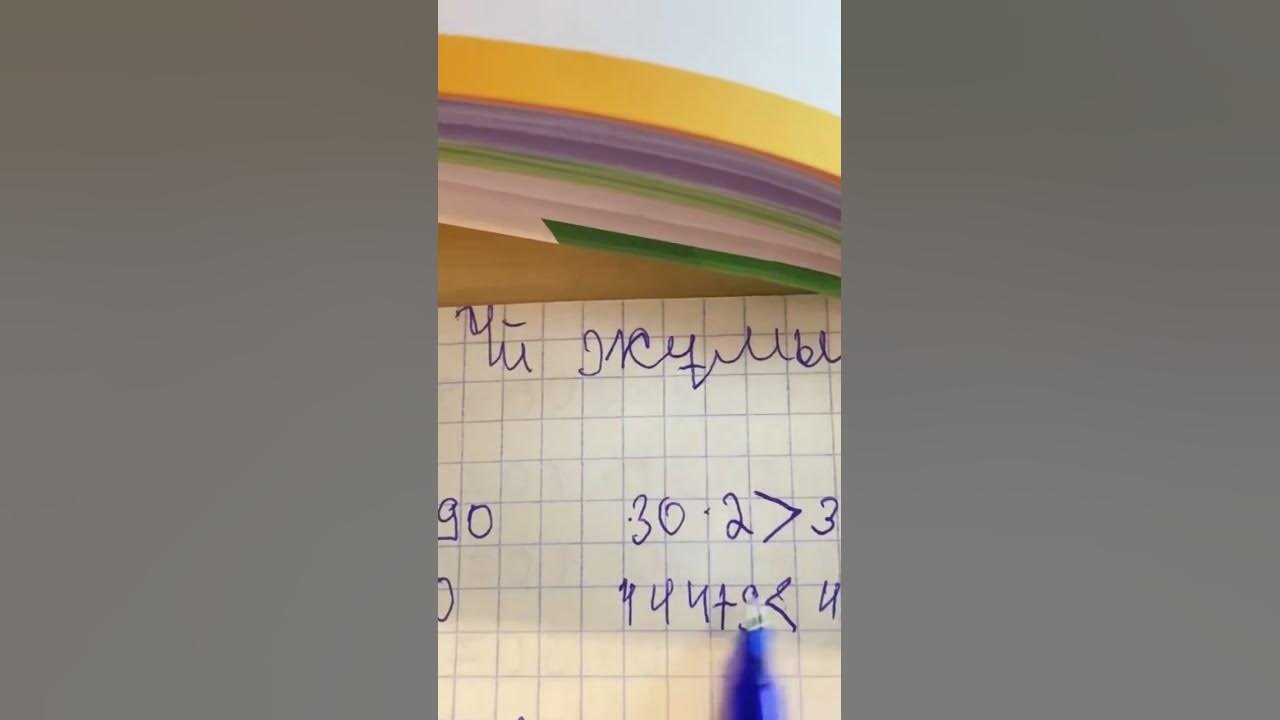 Үй жұмы
90 30·2>3
0 444+9<4